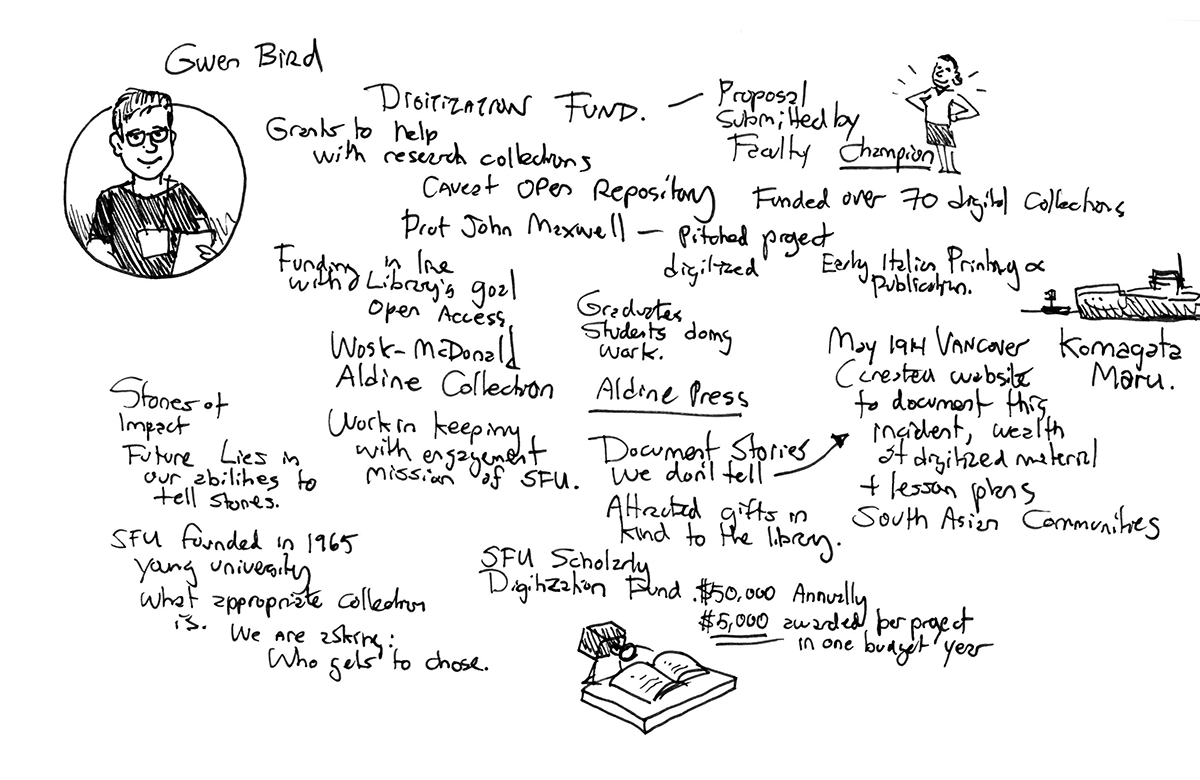 Gwen Bird
DIGITIZATION FUND. — Proposal
Submitted by
Faculty Champion
Grants to help
with research collections
Caveat OPen Repository
Funded over 70 digital Collections
Prof John Maxwell — Pitched project
digitized
Early Italian Printing &
Publication.
Funding in line
with Library's goal
Open Access
Graduates
Students doing
work.
Wosk-McDonald
Aldine Collection
Aldine Press
Komagata
Maru.
May 1914 VANCOVER
Created website
to document this
incident, wealth
of digitized material
+ lesson plans
South Asian Communities
Stories of
Impact
Future Lies in
our abilities to
tell stories.
Work in keeping
with engagement
mission of SFU.
Document Stories
We don't tell
Attracted gifts in
kind to the library.
SFU founded in 1965
young university
What appropriate collection
is.
We are asking:
Who gets to chose.
SFU Scholarly
Digitization Fund.
$50,000 Annually
$5,000 awarded per project
in one budget year